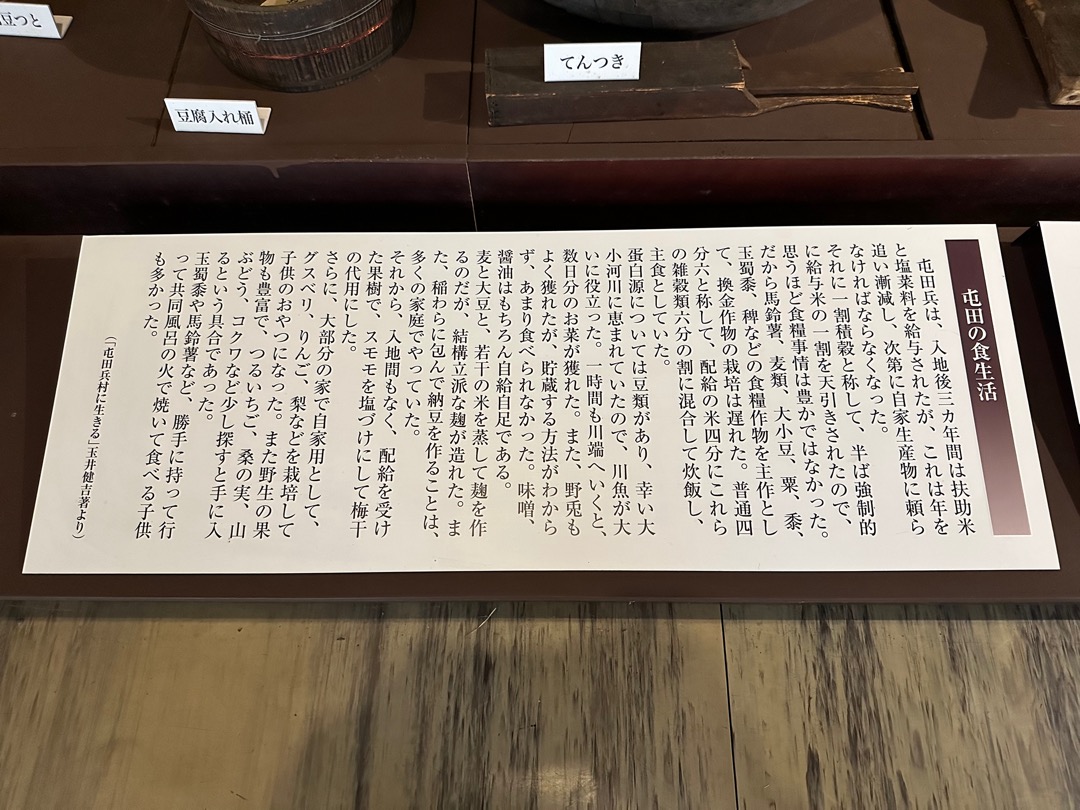 豆つと
豆腐入れ桶
てんつき
屯田の食生活
屯田兵は、入地後三カ年間は扶助米
と塩菜料を給与されたが、これは年を
追い漸減し、次第に自家生産物に頼ら
なければならなくなった。
それに一割積穀と称して、半ば強制的
に給与米の一割を天引きされたので、
思うほど食糧事情は豊かではなかった。
だから馬鈴薯、麦類、大小豆、粟、黍、
玉蜀黍、稗などの食糧作物を主作とし
て、換金作物の栽培は遅れた。普通四
分六と称して、配給の米四分にこれら
の雑穀類六分の割に混合して炊飯し、
主食としていた。
蛋白源については豆類があり、幸い大
小河川に恵まれていたので、川魚が大
いに役立った。一時間も川端へいくと、
数日分のお菜が獲れた。また、野兎も
よく獲れたが、貯蔵する方法がわから
ず、あまり食べられなかった。味噌、
醤油はもちろん自給自足である。
麦と大豆と、若干の米を蒸して麹を作
るのだが、結構立派な麹が造れた。ま
た、稲わらに包んで納豆を作ることは、
多くの家庭でやっていた。
それから、入地間もなく、配給を受け
た果樹で、スモモを塩づけにして梅干
の代用にした。
さらに、大部分の家で自家用として、
グスベリ、りんご、梨などを栽培して
子供のおやつになった。また野生の果
物も豊富で、つるいちご、桑の実、山
ぶどう、コクワなど少し探すと手に入
るという具合であった。
玉蜀黍や馬鈴薯など、勝手に持って行
って共同風呂の火で焼いて食べる子供
も多かった。
（「屯田兵村に生きる」玉井健吉著より）